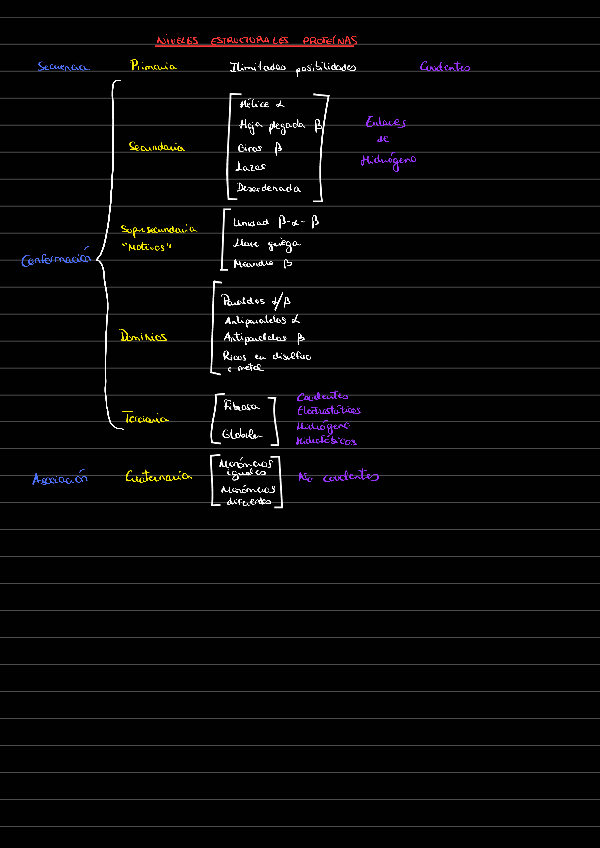 NIVELES ESTRUCTURALES PROTEÍNAS
Secuencia Primaria Ilimitadas posibilidades Covalentes
Hélice α
Hoja plegada β
Secundaria Giros β
Lazos
Desordenada
Enlaces
de
Hidrógeno
Conformación
Suprasecundaria
"Motivos"
Unidad β-α-β
Llave griega
Meandro β
Dominios
Paralelos α/β
Antiparalelos α
Antiparalelos β
Ricos en disulfuro
o metal
Terciaria
Fibrosa
Globular
Covalentes
Electrostáticos
Hidrógeno
Hidrofóbicos
Asociación Cuaternaria
Monómeros
iguales
Monómeros
diferentes
No covalentes